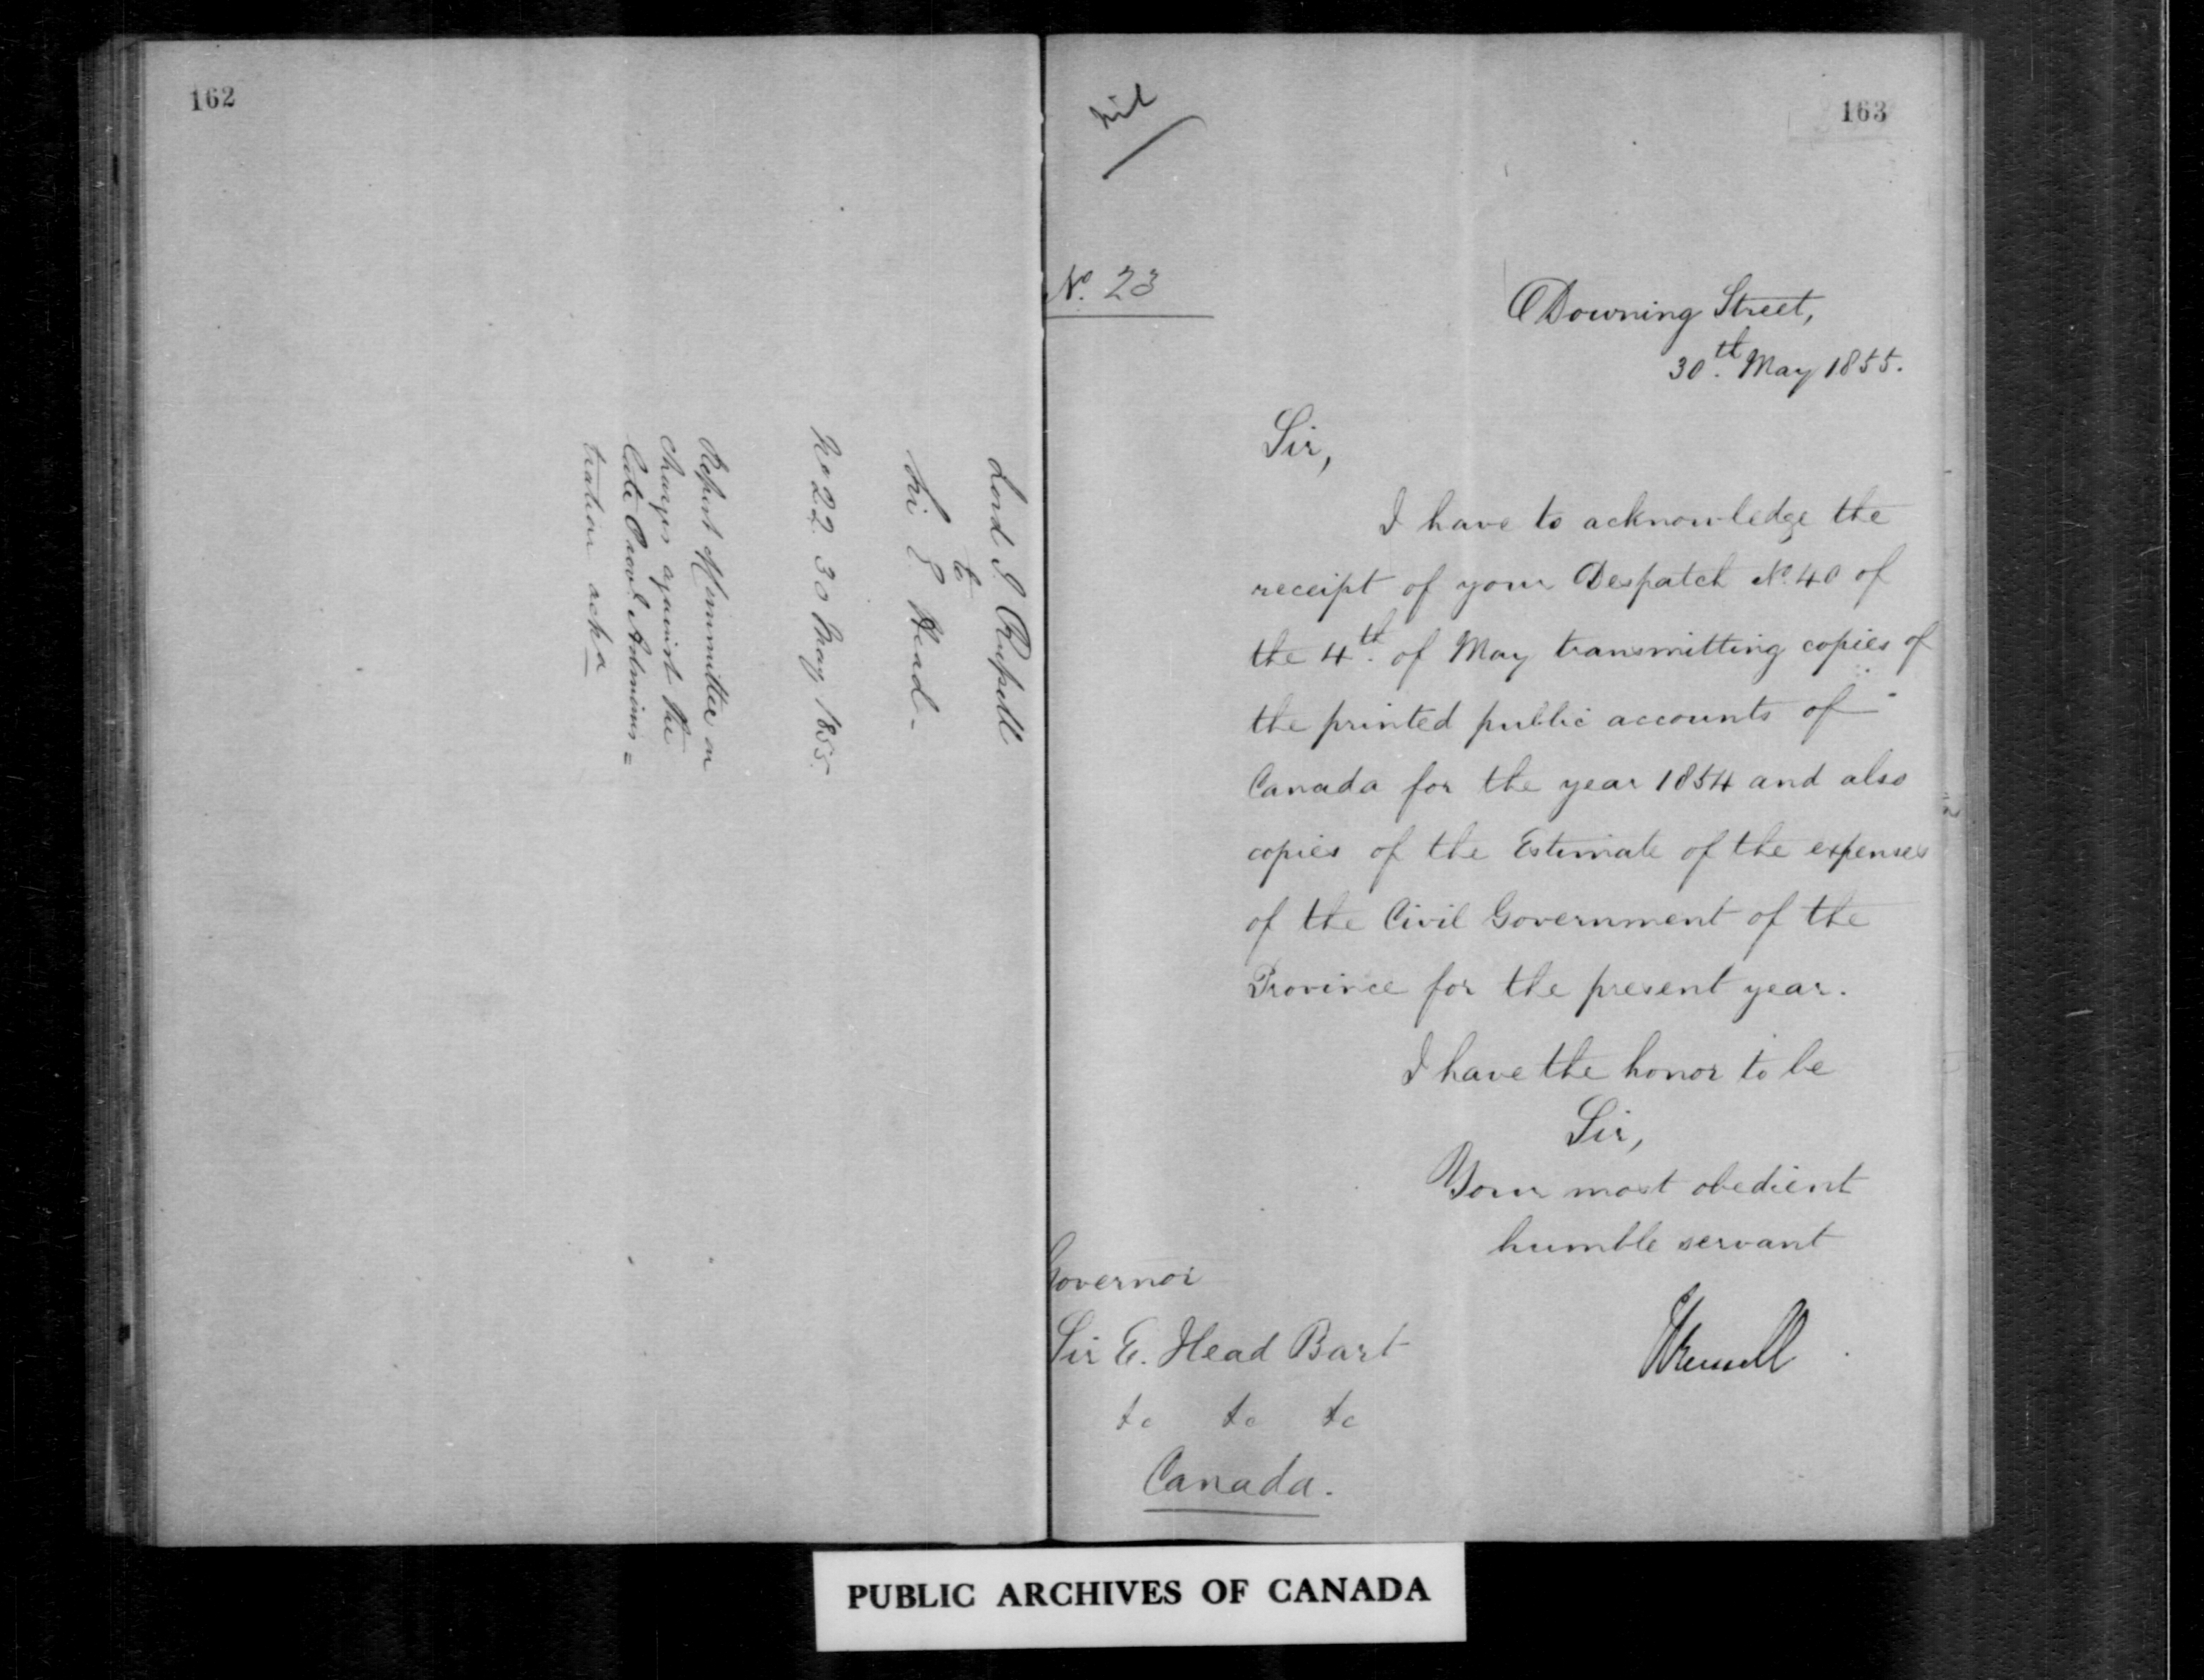 162
Lord J Russell
to
Sir E Head -
No 22 30 May 1855.
Report of Committee on
charges against the
late Provl. Adminis=
tration ackd
nil
163
No. 23
Downing Street,
30th. May 1855.
Sir,
I have to acknowledge the
receipt of your Despatch No. 40 of
the 4th. of May transmitting copies of
the printed public accounts of
Canada for the year 1854 and also
copies of the Estimate of the expenses
of the Civil Government of the
Province for the present year.
I have the honor to be
Sir,
Your most obedient
humble servant
JRussell
Governor
Sir E. Head Bart
&c &c &c
Canada.
PUBLIC ARCHIVES OF CANADA